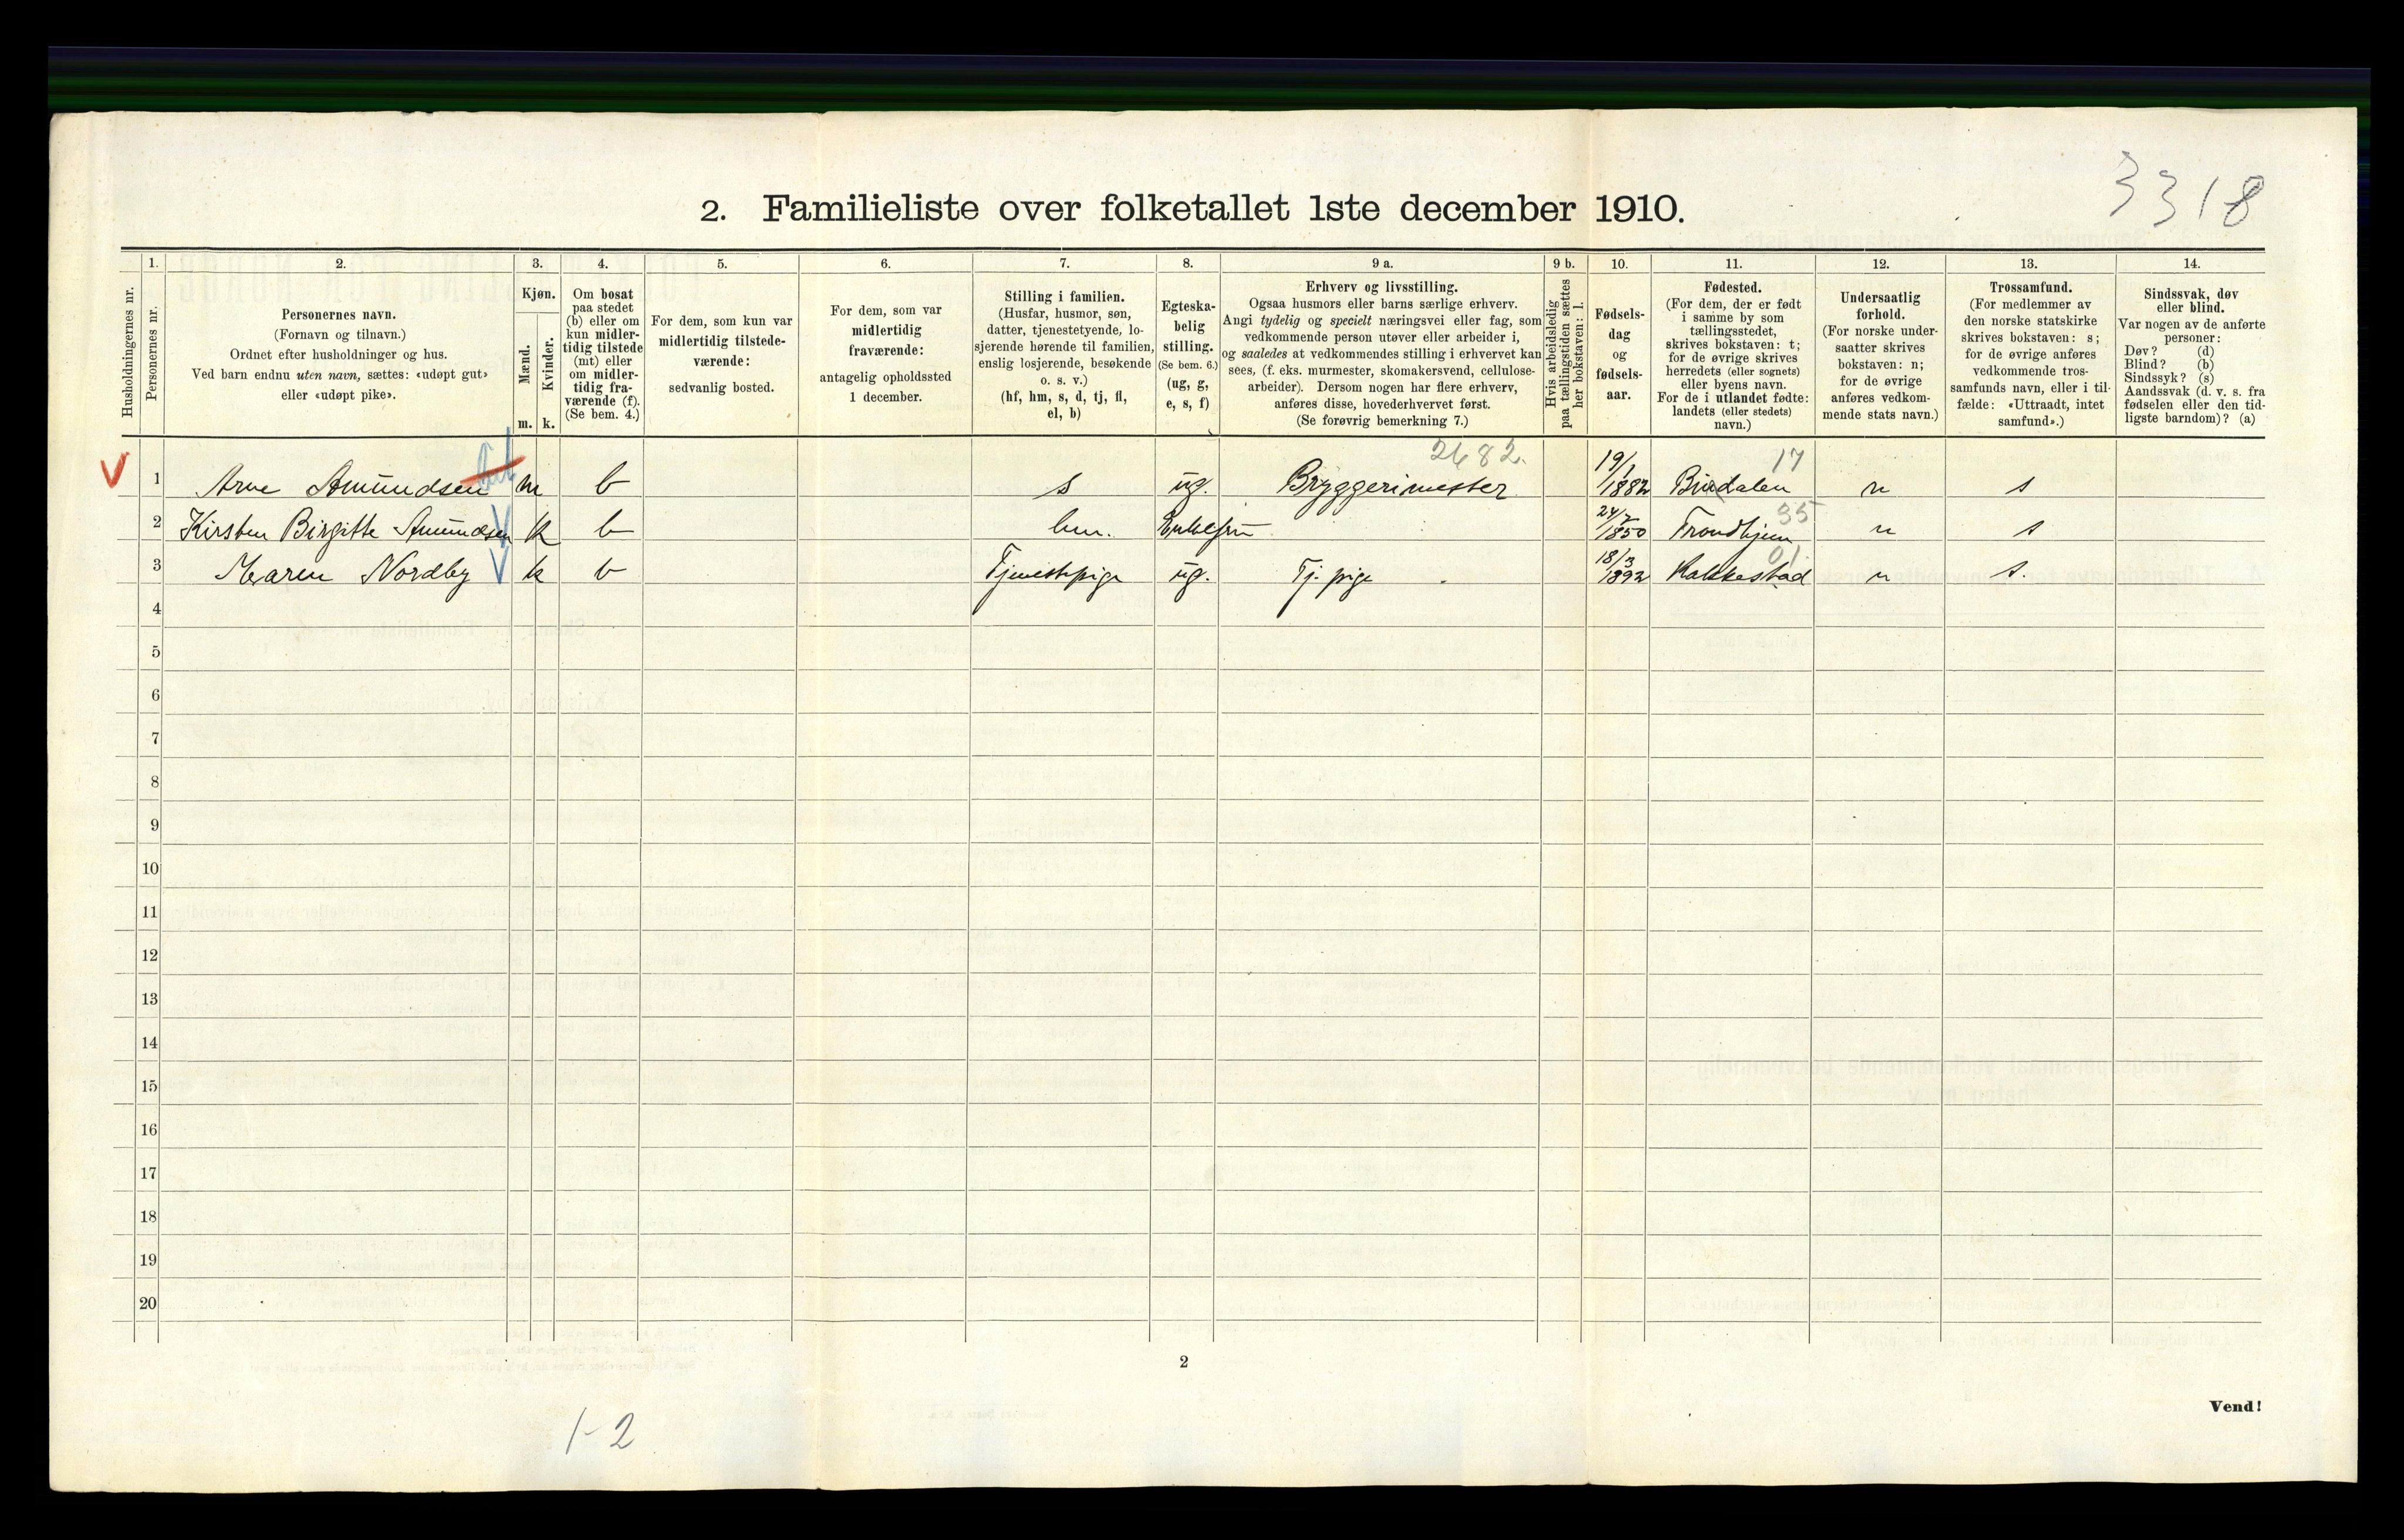 3318
2. Familieliste over folketallet 1ste december 1910.
Husholdningernes nr.
1.
Personernes nr.
2.
Personernes navn.
(Fornavn og tilnavn.)
Ordnet efter husholdninger og hus.
Ved barn endnu uten navn, sættes: «udøpt gut»
eller «udøpt pike».
3.
Kjøn.
Mænd.
Kvinder.
m. k.
4.
Om bosat
paa stedet
(b) eller om
kun midler-
tidig tilstede
(mt) eller
om midler-
tidig fra-
værende (f).
(Se bem. 4.)
5.
For dem, som kun var
midlertidig tilstede-
værende:
sedvanlig bosted.
6.
For dem, som var
midlertidig
fraværende:
antagelig opholdssted
1 december.
7.
Stilling i familien.
(Husfar, husmor, søn,
datter, tjenestetyende, lo-
sjerende hørende til familien,
enslig losjerende, besøkende
o. s. v.)
(hf, hm, s, d, tj, fl,
el, b)
8.
Egteska-
belig
stilling.
(Se bem. 6.)
(ug, g,
e, s, f)
9 a.
Erhverv og livsstilling.
Ogsaa husmors eller barns særlige erhverv.
Angi tydelig og specielt næringsvei eller fag, som
vedkommende person utøver eller arbeider i,
og saaledes at vedkommendes stilling i erhvervet kan
sees, (f. eks. murmester, skomakersvend, cellulose-
arbeider). Dersom nogen har flere erhverv,
anføres disse, hovederhvervet først.
(Se forøvrig bemerkning 7.)
9 b.
Hvis arbeidsledig
paa tællingstiden sættes
her bokstaven: l.
10.
Fødsels-
dag
og
fødsels-
aar.
11.
Fødested.
(For dem, der er født
i samme by som
tællingsstedet,
skrives bokstaven: t;
for de øvrige skrives
herredets (eller sognets)
eller byens navn.
For de i utlandet fødte:
landets (eller stedets)
navn.)
12.
Undersaatlig
forhold.
(For norske under-
saatter skrives
bokstaven: n;
for de øvrige
anføres vedkom-
mende stats navn.)
13.
Trossamfund.
(For medlemmer av
den norske statskirke
skrives bokstaven: s;
for de øvrige anføres
vedkommende tros-
samfunds navn, eller i til-
fælde: «Uttraadt, intet
samfund».)
14.
Sindssvak, døv
eller blind.
Var nogen av de anførte
personer:
Døv? (d)
Blind? (b)
Sindssyk? (s)
Aandssvak (d. v. s. fra
fødselen eller den tid-
ligste barndom)? (a)
2682. 17
1 Arne Amundsen m b s ug. Bryggerimester 19/1 1882 n s
35
2 Kirsten Birgitte Amundsen k b hm. Enkefru 24/7 1850 Trondhjem n s
01.
3 Maren Nordby k b Tjenestepige ug. Tj. pige 18/3 1892 Rakkestad n s.
4
5
6
7
8
9
10
11
12
13
14
15
16
17
18
19
20
2
Vend!
1-2